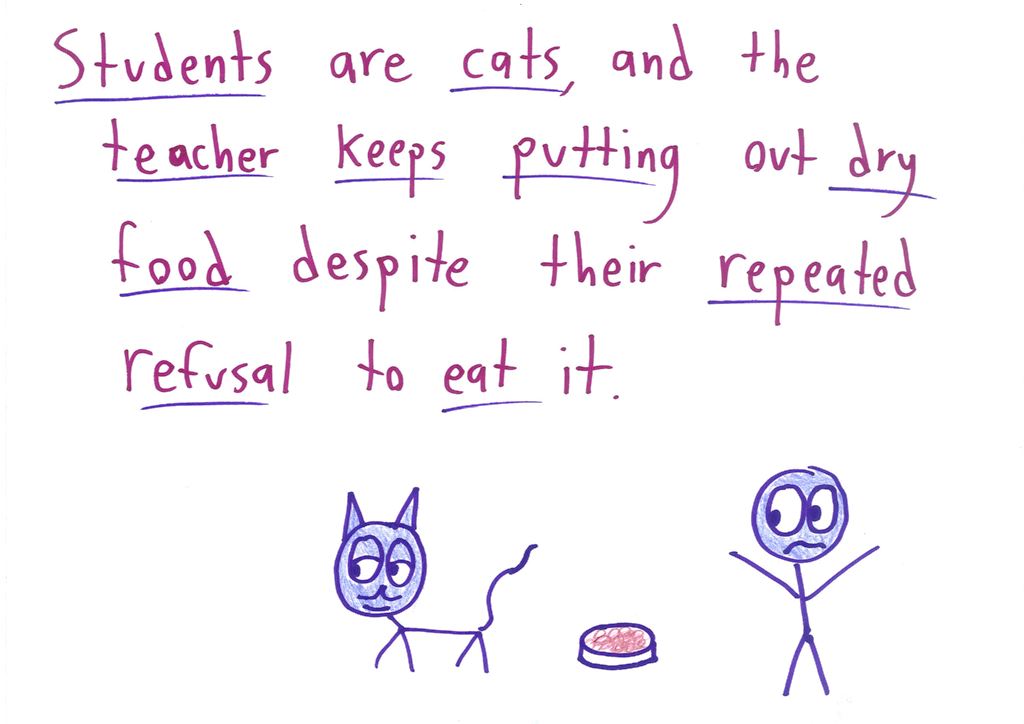 Students are cats, and the
teacher keeps putting out dry
food despite their repeated
refusal to eat it.